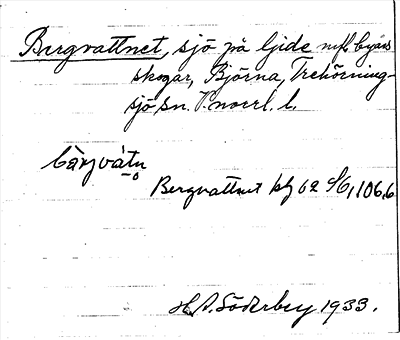 Bergvattnet, sjö på Gide m.fl. byars
skogar, Björna, Trehörning-
sjö sn. V. norrl. l.
bærjvátn
Bergvattnet blg 62 S6, 106,6
H.A. Söderberg 1933.